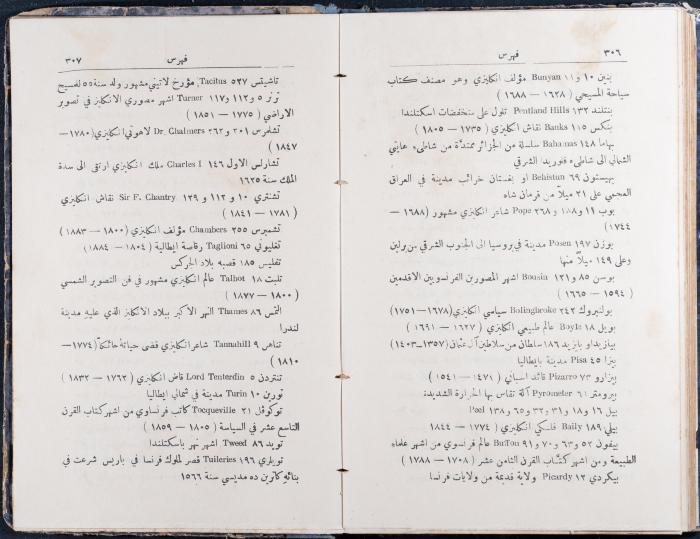 ٣٠٦
فهرس
بنين ١٠ و ١١ Bunyan مؤلف انكليزي وهو مصنف كتاب
سياحة المسيحي ( ١٦٢٨ — ١٦٨٨ )
بنتلند ١٣٢ Pentland Hills تلول على منخفضات اسكتلندا
بنكس ١١٥ Banks نقاش انكليزي ( ١٧٣٥ — ١٨٠٥ )
بهاما ١٤٨ Bahamas سلسلة من الجزائر ممتدة من شاطىء هايتي
الشمالي الى شاطىء فلوريدا الشرقي
بهيستون ٦٩ Behistun او بغستان خرائب مدينة في العراق
العجمي على ٢١ ميلاً من قرمان شاه
بوب ١١ و ١٨٨ و ٢٦٨ Pope شاعر انكليزي مشهور ( ١٦٨٨ —
١٧٤٤ )
بوزن ١٩٧ Posen مدينة في بروسيا الى الجنوب الشرقي من برلين
وعلى ١٤٩ ميلاً منها
بوسن ٨٥ و ١٢١ Bousin اشهر المصورين الفرنسويين الاقدمين
( ١٥٩٤ — ١٦٦٥ )
بولنبروك ٢٤٢ Bolingbroke سياسي انكليزي (١٦٧٨ — ١٧٥١)
بويل ١٨ Boyle عالم طبيعي انكليزي ( ١٦٢٧ — ١٦٩١ )
بيازيد او بايزيد ١٨٦ سلطان من سلاطين آل عثمان (١٣٥٧—١٤٠٣)
بيزا ٤٥ Pisa مدينة بايطاليا
بيزارو ٧٣ Pizarro قائد اسباني ( ١٤٧١ — ١٥٤١ )
بيرومتر ٦١ Pyrometer آلة تقاس بها الحرارة الشديدة
بيل ١٦ و ١٨ و ٣١ و ٣٢ و ٦٥ و ١٣٨ Peel
بيلي ١٨٩ Baily فلكي انكليزي ( ١٧٧٤ — ١٨٤٤
بيفون ٥٢ و ٦٣ و ٧٠ و ٩١ Buffon عالم فرانسوي من اشهر علماء
الطبيعة ومن اشهر كتَّاب القرن الثامن عشر ( ١٧٠٨ — ١٧٨٨ )
بيكردي ١٢ Picardy ولاية قديمة من ولايات فرنسا
فهرس
٣٠٧
تاشيتس ٥٢٧ Tacitus مؤرخ لاتيني مشهور ولد سنة ٥٥ للمسيح
ترنر ٥ و ١١٢ و ١١٧ Turner اشهر مصوري الانكليز في تصوير
الاراضي ( ١٧٧٥ — ١٨٥١ )
تشلمرس ٢٠١ و ٢٦٢ Dr. Chalmers لاهوتي انكليزي (١٧٨٠—
١٨٤٧
تشارلس الاول ١٤٦ Charles I ملك انكليزي ارتقى الى سدة
الملك سنة ١٦٢٥
تشنتري ١٠ و ١١٢ و ١٢٩ Sir F. Chantry نقاش انكليزي
( ١٧٨١ — ١٨٤١ )
تشمبرس ٢٥٥ Chambers مؤلف انكليزي (١٨٠٠ — ١٨٨٣ )
تغليوني ٦٥ Taglioni رقاصة ايطالية ( ١٨٠٤ — ١٨٨٤ )
تفليس ١٨٥ قصبه بلاد الجركس
تلبت ١٨ Talbot عالم انكليزي مشهور في فن التصوير الشمسي
( ١٨٠٠ — ١٨٧٧ )
التمس ٨٦ Thames النهر الاكبر ببلاد الانكليز الذي عليه مدينة
لندرا
تناهل ٩ Tannahill شاعر انكليزي قضى حياته حائكاً (١٧٧٤—
١٨١٠
تنتردن ٥ Lord Tenterdin قاض انكليزي ( ١٧٦٢ — ١٨٣٢ )
تورين ١٠ Turin مدينة في شمالي ايطاليا
توكوڤل ٢١ Tocqueville كاتب فرنساوي من اشهر كتاب القرن
التاسع عشر في السياسة ( ١٨٠٥ — ١٨٥٩ )
تويد ٨٦ Tweed اشهر نهر باسكتلندا
تويلري ١٩٦ Tuileries قصر لملوك فرنسا في باريس شرعت في
بنائه كاترين ده مديسي سنة ١٥٦٦